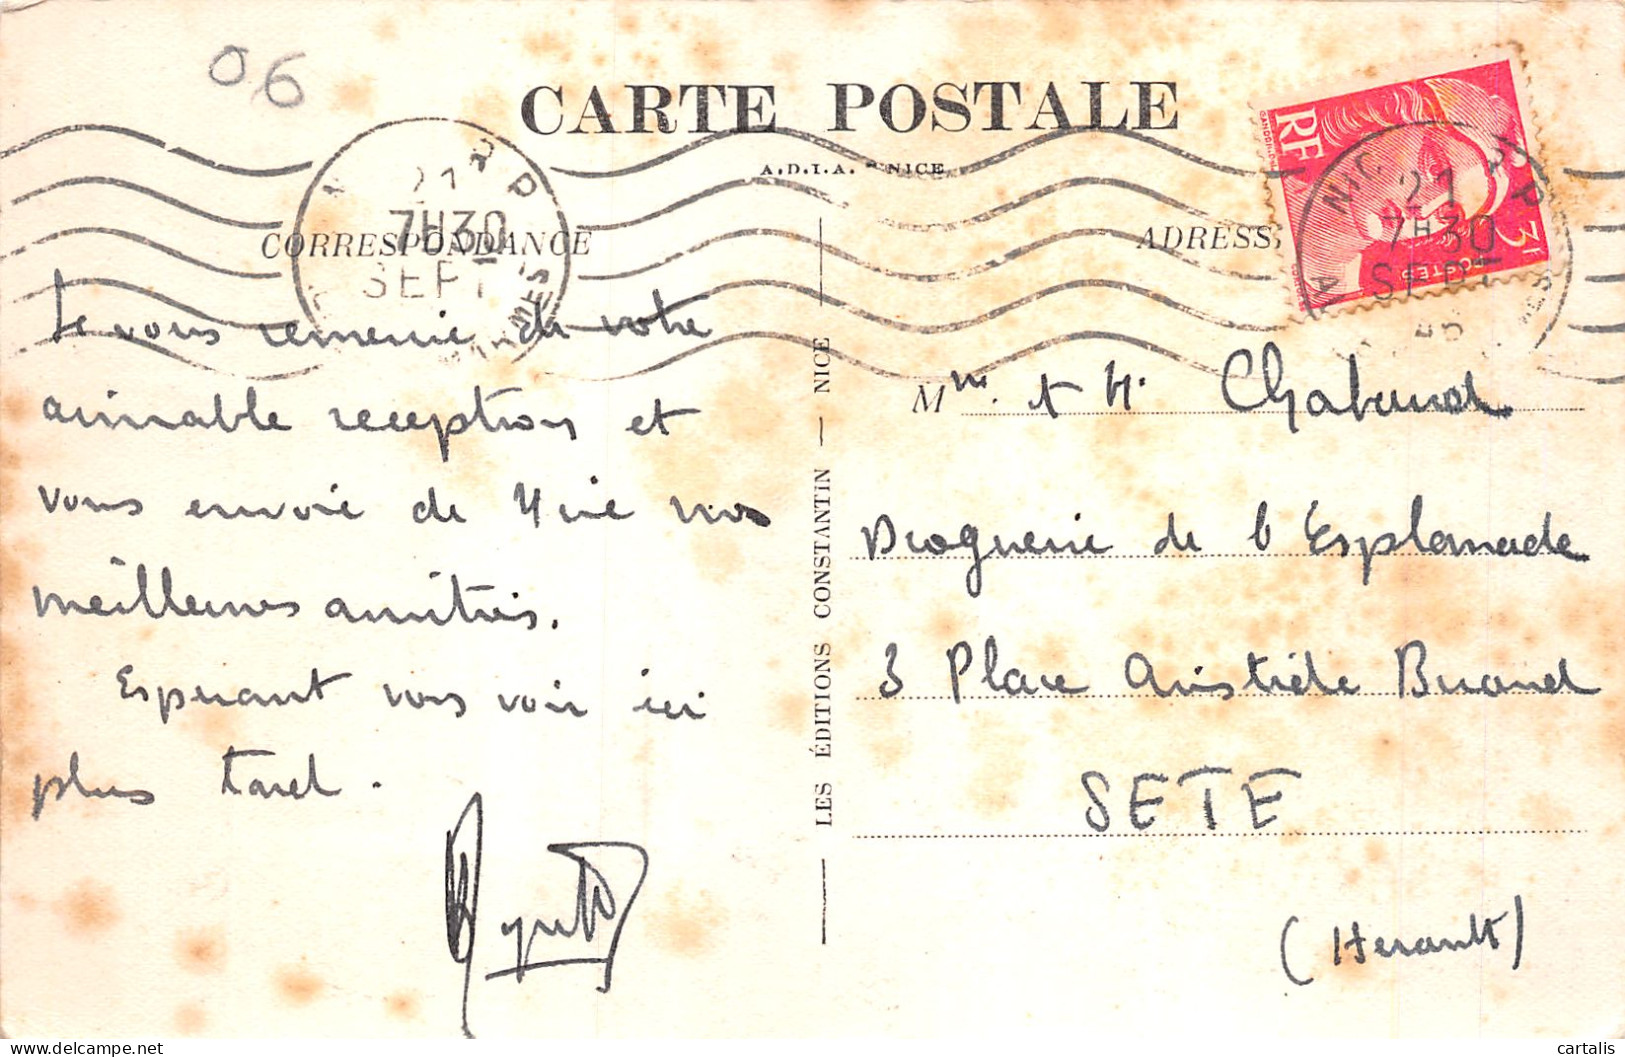 06
CARTE POSTALE
A.D.I.A. NICE
CORRESPONDANCE
ADRESSE
21
7H30
SEPT
RF
POSTES
3F
21
7H30
SEPT
46
Je vous remercie de votre
aimable réception et
vous envoie de Nice nos
meilleures amitiés.
Espérant vous voir ici
plus tard.
LES ÉDITIONS CONSTANTIN — NICE
Mme. & M. Chabaud
Droguerie de l'Esplanade
3 Place Aristide Briand
SETE
(Herault)
cartalis